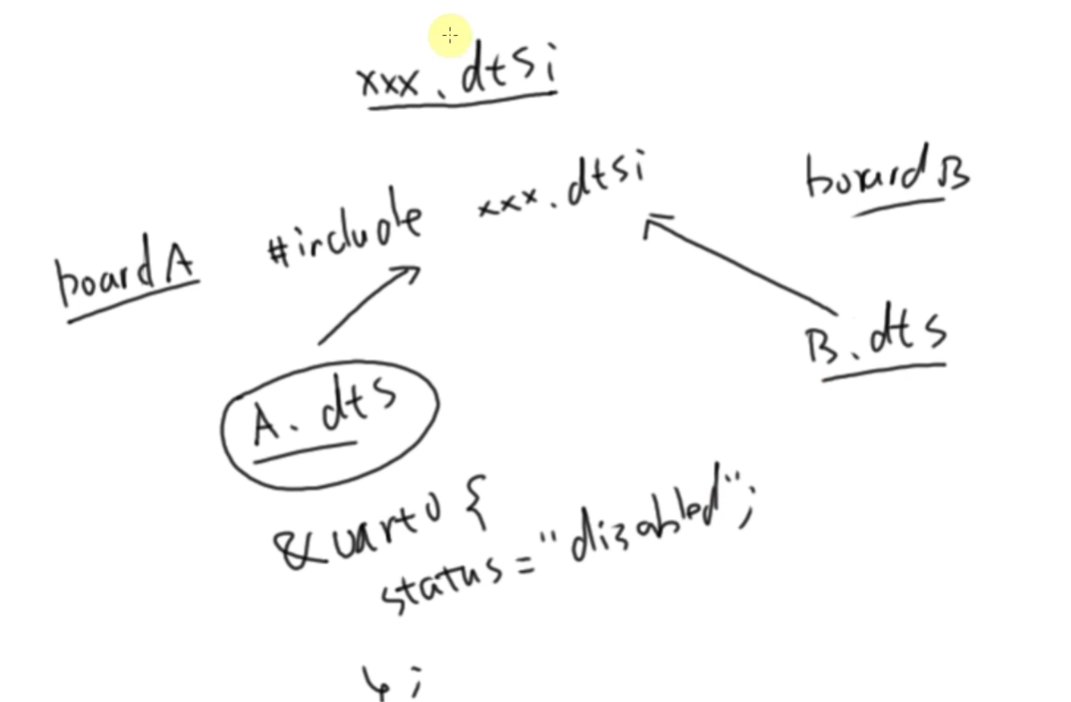 xxx.dtsi
boardA #include xxx.dtsi
boardB
A.dts
B.dts
&uart0 {
status = "disabled";
};